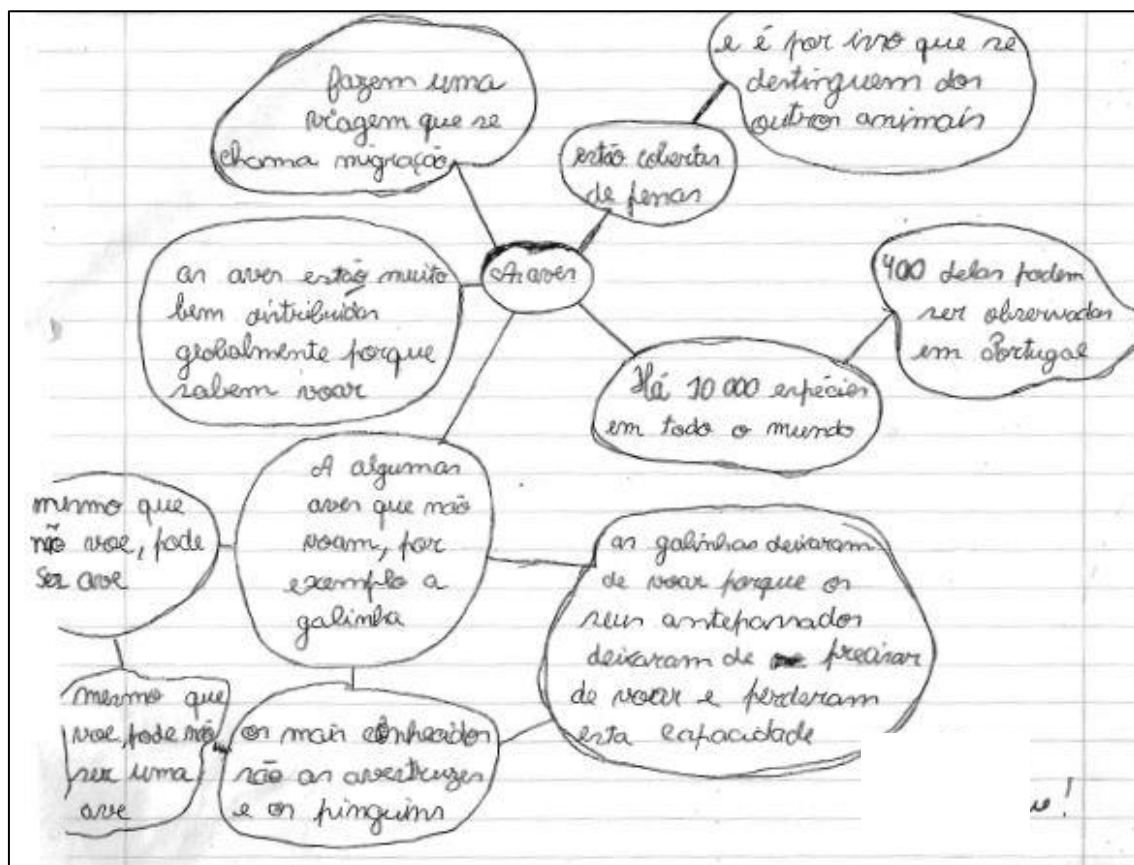 fazem uma
viagem que se
chama migração
e é por isso que se
destinguem dos
outros animais
estão cobertas
de penas
As aves
as aves estão muito
bem distribuidas
geobalmente porque
sabem voar
400 delas podem
ser observadas
em Portugal
Há 10 000 espécies
em todo o mundo
A algumas
aves que não
voam, por
exemplo a
galinha
mesmo que
não voe, pode
ser ave
as galinhas deixaram
de voar porque os
seus antepassados
deixaram de precisar
de voar e perderam
esta capacidade
mesmo que
voe, pode não
ser uma
ave
os mais conhecidos
são as avestruzes
e os pinguins